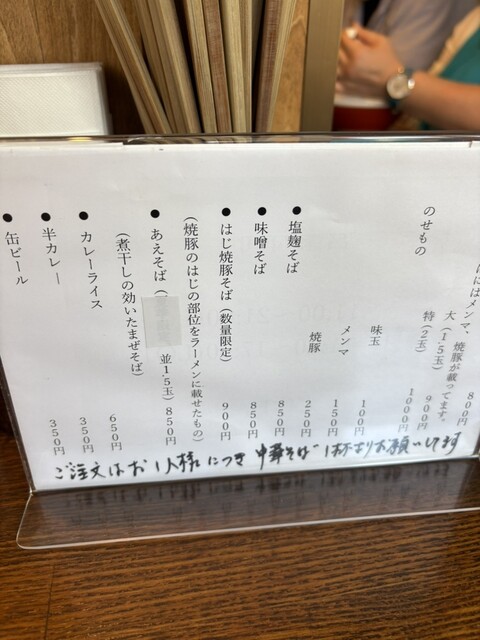 にはメンマ、焼豚が載ってます。
800円
大(1.5玉) 900円
特(2玉) 1000円
のせもの
味玉 100円
メンマ 150円
焼豚 250円
●塩麹そば 850円
●味噌そば 850円
●はじ焼豚そば(数量限定) 900円
(焼豚のはじの部位をラーメンに載せたもの)
●あえそば( 並1.5玉) 850円
(煮干しの効いたまぜそば)
●カレーライス 650円
●半カレー 350円
●缶ビール 350円
ご注文はお1人様につき 中華そば 1杯よりお願いします